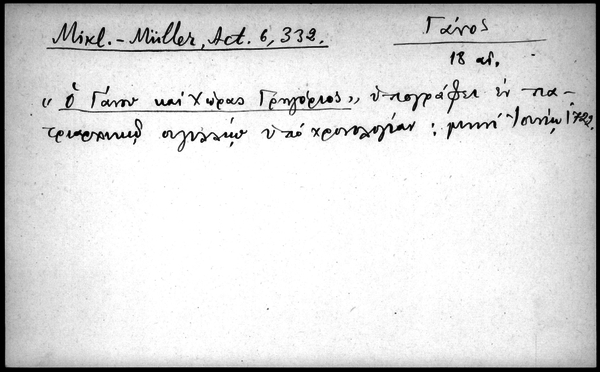 Mikl.-Müller, Act. 6, 332.
Γάνος
18 αἰ.
"ὁ Γάνου καὶ Χώρας Γρηγόριος", ὑπογράφει ἐν πα-
τριαρχικῷ σιγιλλίῳ ὑπὸ χρονολογίαν: μηνὶ Ἰουνίῳ 1722.